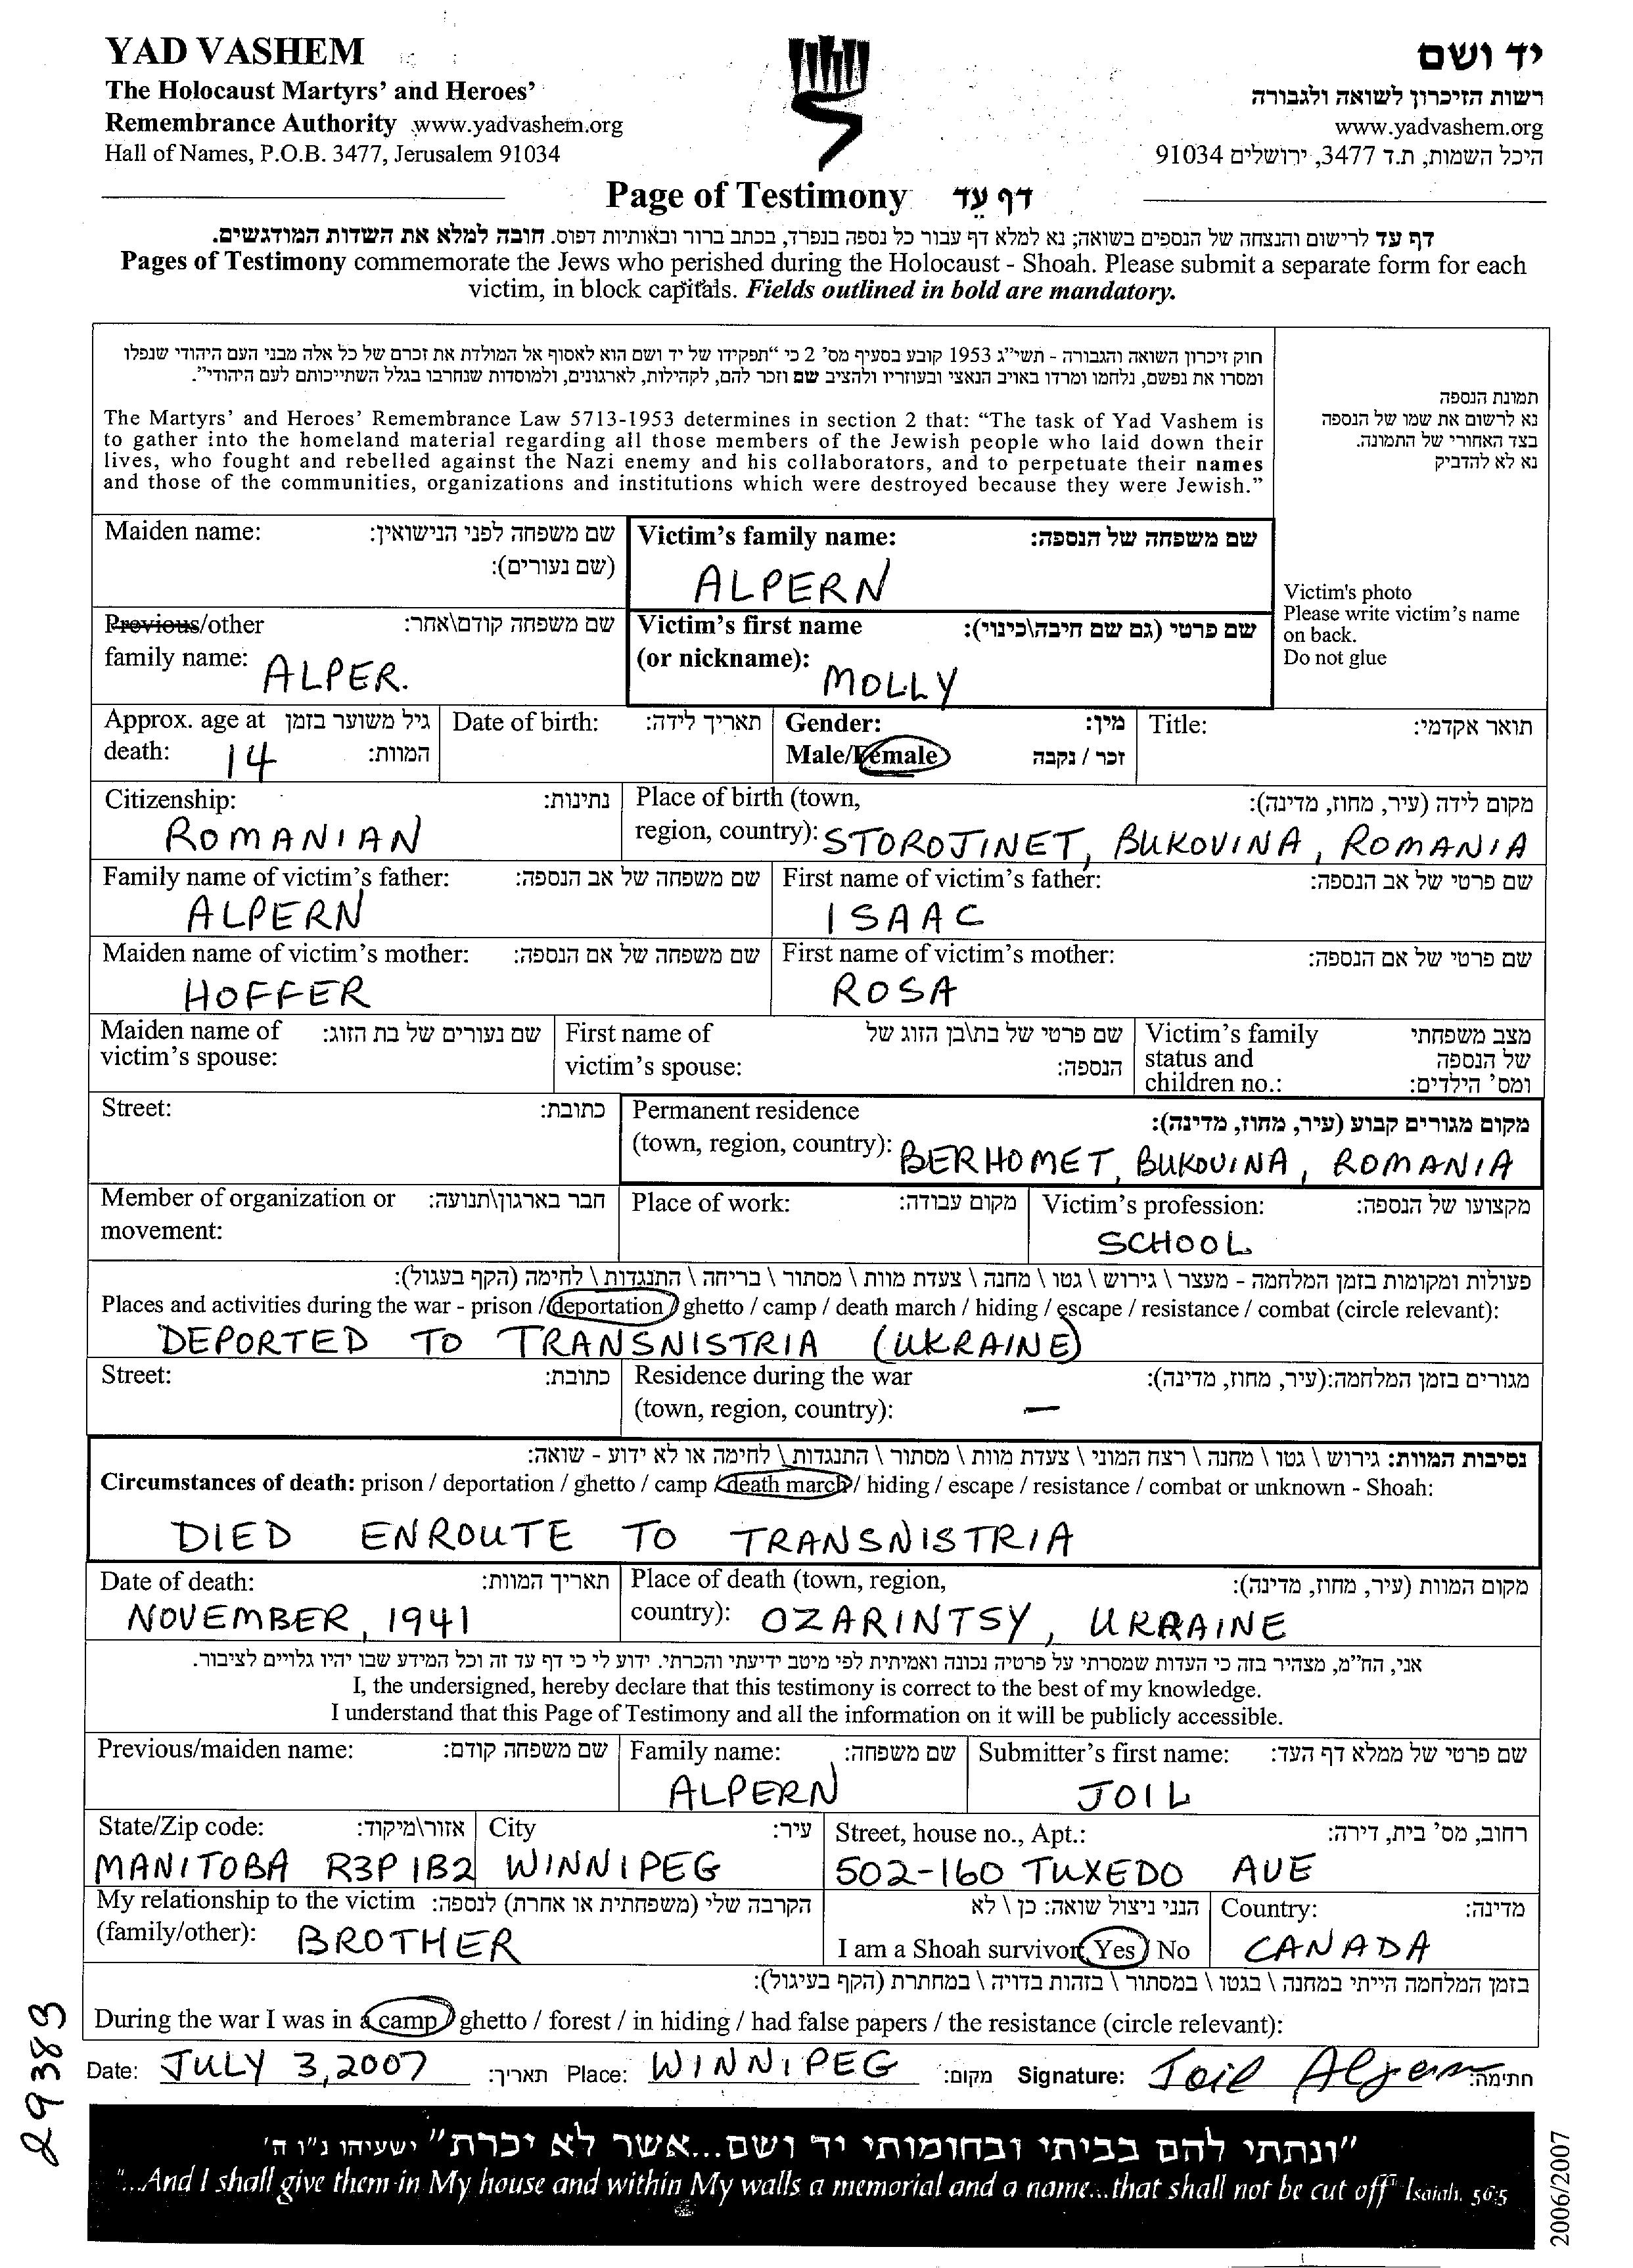 YAD VASHEM
The Holocaust Martyrs' and Heroes'
Remembrance Authority www.yadvashem.org
Hall of Names, P.O.B. 3477, Jerusalem 91034
יד ושם
רשות הזיכרון לשואה ולגבורה
www.yadvashem.org
היכל השמות, ת.ד 3477, ירושלים 91034
Page of Testimony דף עֵד
דף עד לרישום והנצחה של הנספים בשואה; נא למלא דף עבור כל נספה בנפרד, בכתב ברור ובאותיות דפוס. חובה למלא את השדות המודגשים.
Pages of Testimony commemorate the Jews who perished during the Holocaust - Shoah. Please submit a separate form for each
victim, in block capitals. Fields outlined in bold are mandatory.
חוק זיכרון השואה והגבורה - תשי"ג 1953 קובע בסעיף מס' 2 כי "תפקידו של יד ושם הוא לאסוף אל המולדת את זכרם של כל אלה מבני העם היהודי שנפלו
ומסרו את נפשם, נלחמו ומרדו באויב הנאצי ובעוזריו ולהציב שם וזכר להם, לקהילות, לארגונים, ולמוסדות שנחרבו בגלל השתייכותם לעם היהודי".
The Martyrs' and Heroes' Remembrance Law 5713-1953 determines in section 2 that: "The task of Yad Vashem is
to gather into the homeland material regarding all those members of the Jewish people who laid down their
lives, who fought and rebelled against the Nazi enemy and his collaborators, and to perpetuate their names
and those of the communities, organizations and institutions which were destroyed because they were Jewish."
תמונת הנספה
נא לרשום את שמו של הנספה
בצד האחורי של התמונה.
נא לא להדביק
Victim's photo
Please write victim's name
on back.
Do not glue
Maiden name: שם משפחה לפני הנישואין:
(שם נעורים):
Victim's family name: שם משפחה של הנספה:
ALPERN
Previous/other שם משפחה קודם\אחר:
family name: ALPER.
Victim's first name שם פרטי (גם שם חיבה\כינוי):
(or nickname): MOLLY
Approx. age at גיל משוער בזמן
death: 14 המוות:
Date of birth: תאריך לידה:
Gender: מין:
Male/Female זכר / נקבה
Title: תואר אקדמי:
Citizenship: נתינות:
ROMANIAN
Place of birth (town, מקום לידה (עיר, מחוז, מדינה):
region, country): STOROJINET, BUKOVINA, ROMANIA
Family name of victim's father: שם משפחה של אב הנספה:
ALPERN
First name of victim's father: שם פרטי של אב הנספה:
ISAAC
Maiden name of victim's mother: שם משפחה של אם הנספה:
HOFFER
First name of victim's mother: שם פרטי של אם הנספה:
ROSA
Maiden name of שם נעורים של בת הזוג:
victim's spouse:
First name of שם פרטי של בת\בן הזוג של
victim's spouse: הנספה:
Victim's family מצב משפחתי
status and של הנספה
children no.: ומס' הילדים:
Street: כתובת:
Permanent residence מקום מגורים קבוע (עיר, מחוז, מדינה):
(town, region, country): BERHOMET, BUKOVINA, ROMANIA
Member of organization or חבר בארגון\תנועה:
movement:
Place of work: מקום עבודה:
Victim's profession: מקצועו של הנספה:
SCHOOL
פעולות ומקומות בזמן המלחמה - מעצר \ גירוש \ גטו \ מחנה \ צעדת מוות \ מסתור \ בריחה \ התנגדות \ לחימה (הקף בעגול):
Places and activities during the war - prison / deportation / ghetto / camp / death march / hiding / escape / resistance / combat (circle relevant):
DEPORTED TO TRANSNISTRIA (UKRAINE)
Street: כתובת:
Residence during the war מגורים בזמן המלחמה:(עיר, מחוז, מדינה):
(town, region, country): —
נסיבות המוות: גירוש \ גטו \ מחנה \ רצח המוני \ צעדת מוות \ מסתור \ התנגדות \ לחימה או לא ידוע - שואה:
Circumstances of death: prison / deportation / ghetto / camp / death march / hiding / escape / resistance / combat or unknown - Shoah:
DIED ENROUTE TO TRANSNISTRIA
Date of death: תאריך המוות:
NOVEMBER, 1941
Place of death (town, region, מקום המוות (עיר, מחוז, מדינה):
country): OZARINTSY, UKRAINE
אני, הח"מ, מצהיר בזה כי העדות שמסרתי על פרטיה נכונה ואמיתית לפי מיטב ידיעתי והכרתי. ידוע לי כי דף עד זה וכל המידע שבו יהיו גלויים לציבור.
I, the undersigned, hereby declare that this testimony is correct to the best of my knowledge.
I understand that this Page of Testimony and all the information on it will be publicly accessible.
Previous/maiden name: שם משפחה קודם:
Family name: שם משפחה:
ALPERN
Submitter's first name: שם פרטי של ממלא דף העד:
JOIL
State/Zip code: אזור\מיקוד:
MANITOBA R3P1B2
City עיר:
WINNIPEG
Street, house no., Apt.: רחוב, מס' בית, דירה:
502-160 TUXEDO AVE
My relationship to the victim הקרבה שלי (משפחתית או אחרת) לנספה:
(family/other): BROTHER
הנני ניצול שואה: כן \ לא
I am a Shoah survivor: Yes / No
Country: מדינה:
CANADA
בזמן המלחמה הייתי במחנה \ בגטו \ במסתור \ בזהות בדויה \ במחתרת (הקף בעיגול):
During the war I was in a camp / ghetto / forest / in hiding / had false papers / the resistance (circle relevant):
Date: JULY 3, 2007 תאריך: Place: WINNIPEG מקום: Signature: Joil Alpern חתימה:
"ונתתי להם בביתי ובחומותי יד ושם...אשר לא יכרת" ישעיהו נ"ו ה'
"...And I shall give them in My house and within My walls a memorial and a name...that shall not be cut off" Isaiah. 56:5
29383
2006/2007